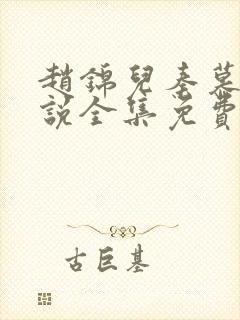 趙錦兒秦慕
說全集免費
古巨基